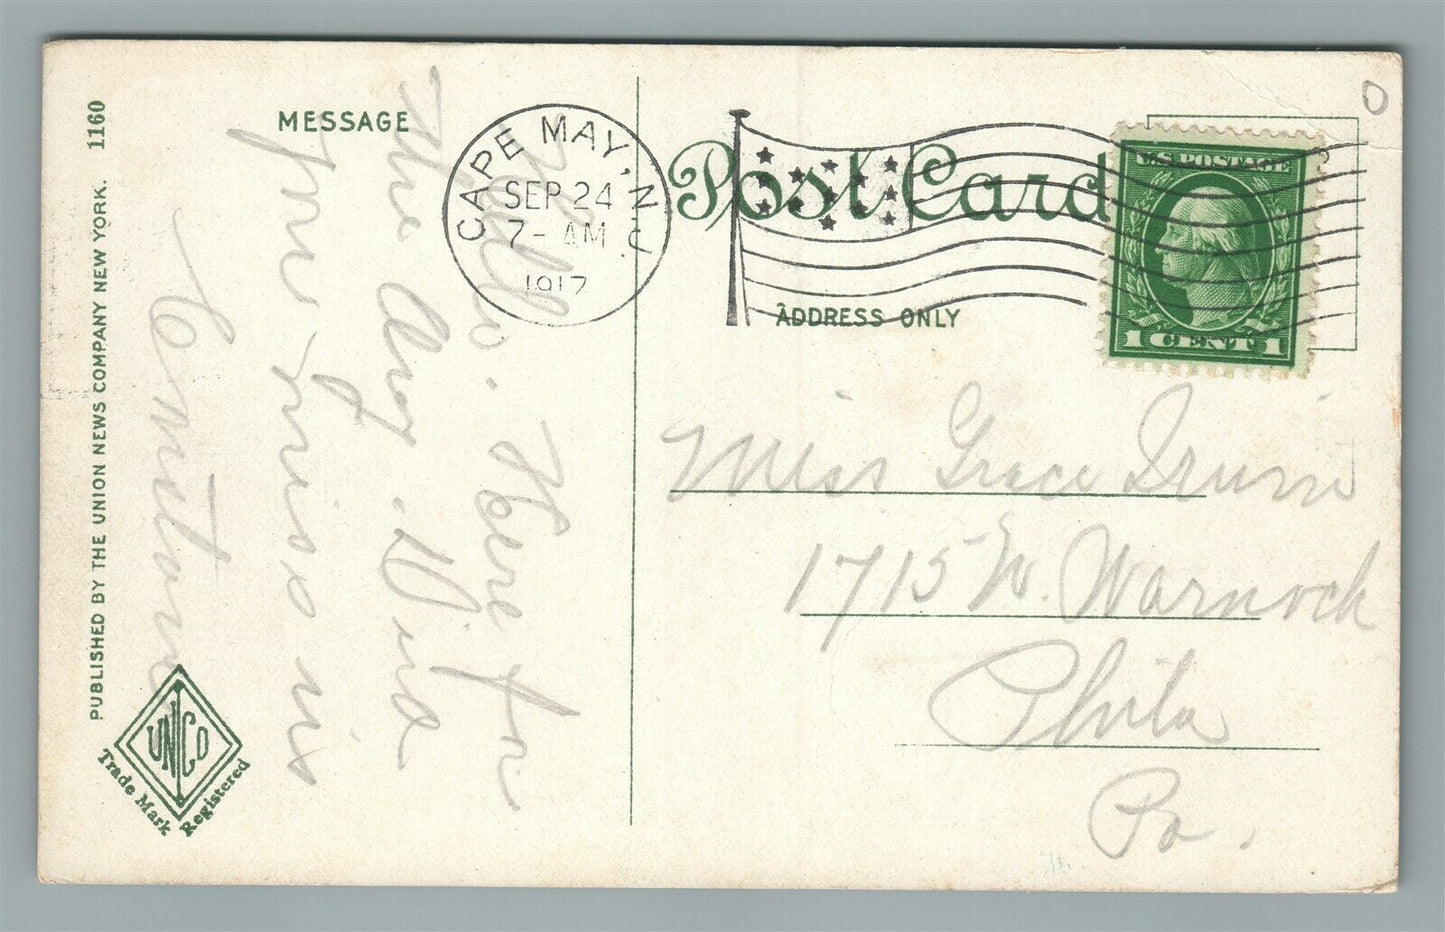 1160
PUBLISHED BY THE UNION NEWS COMPANY NEW YORK.
MESSAGE
Hello. Here for
the day. Did
you miss us
UNICO
Trade Mark Registered
CAPE MAY, N.J.
SEP 24
7 - AM
1917
Post Card
ADDRESS ONLY
U.S. POSTAGE
1 CENT 1
Miss Grace Irwin
1715 W. Warnock
Phila
Pa.
O